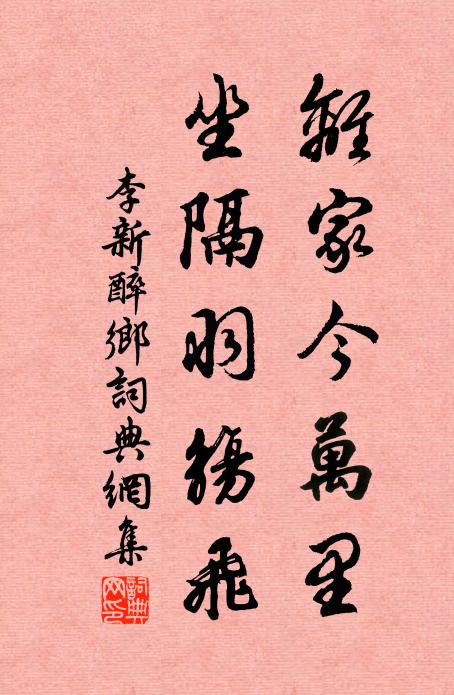 離家今萬里
坐隔羽觴飛
李新醉鄉詞典網集
詞典
网印